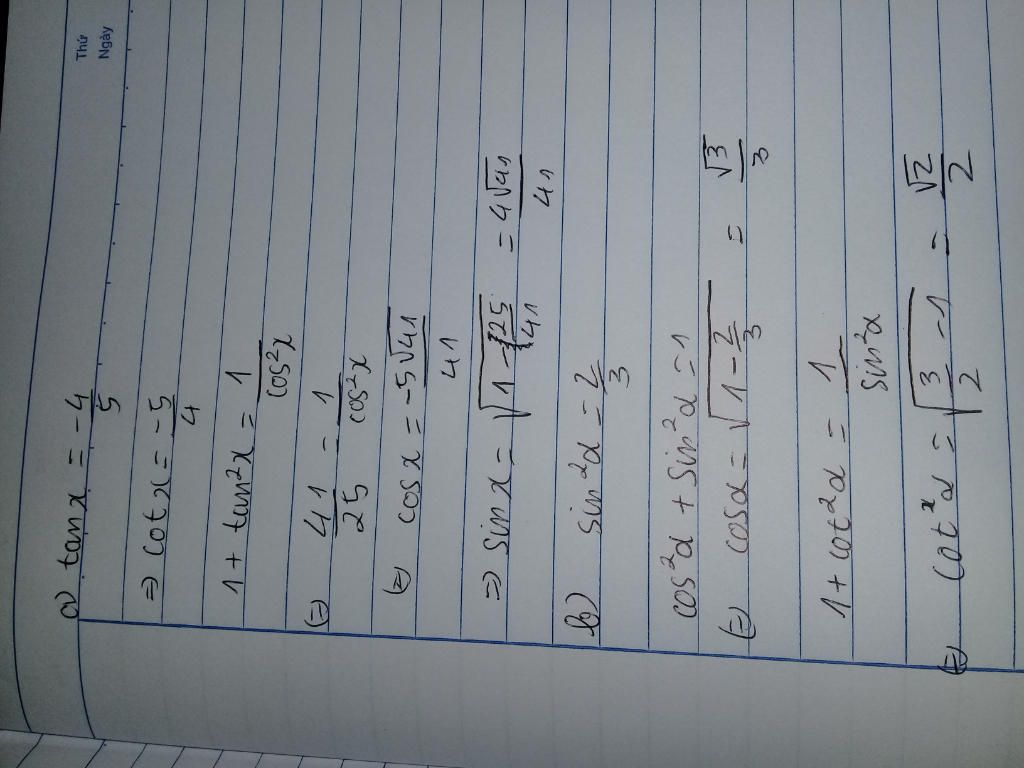 Thứ
Ngày
a) tan x = -4/5
=> cot x = -5/4
1 + tan²x = 1/cos²x
(=) 41/25 = 1/cos²x
(=) cos x = -5√41/41
=> sin x = √(1 - 25/41) = 4√41/41
b) sin²α = 2/3
cos²α + sin²α = 1
(=) cosα = √(1 - 2/3) = √3/3
1 + cot²α = 1/sin²α
(=) cot α = √(3/2 - 1) = √2/2